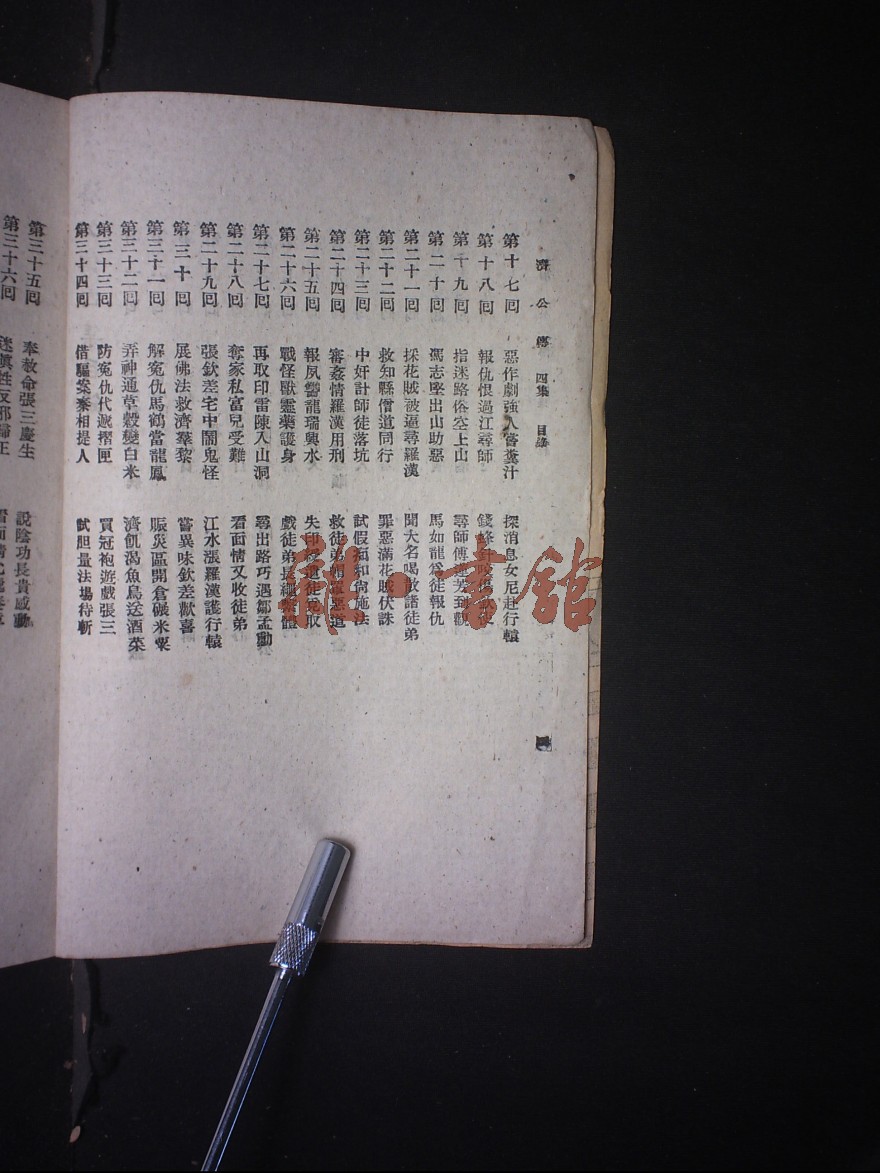 濟公傳 四集 目錄
第十七回 惡作劇強人嘗糞汁 探消息女尼赴行轅
第十八回 報仇恨過江尋師
第十九回 指迷路俗空上山 尋師傅
第二十回 馮志堅出山助惡 馬如龍爲徒報仇
第二十一回 採花賊被逼尋羅漢 聞大名喝散諸徒弟
第二十二回 救知縣僧道同行 罪惡滿花賊伏誅
第二十三回 中奸計師徒落坑 試假和尚施法
第二十四回 審姦情羅漢用刑 救徒弟惡道
第二十五回 報夙讐龍瑞興水 失印
第二十六回 戰怪獸靈藥護身 戲徒弟長繩繫體
第二十七回 再取印雷陳入山洞 尋出路巧遇鄒孟動
第二十八回 奪家私富兒受難 看面情又收徒弟
第二十九回 張欽差宅中鬧鬼怪 江水漲羅漢護行轅
第三十回 展佛法救濟羣黎 嘗異味欽差歡喜
第三十一回 解冤仇馬鶴當龍鳳 賑災區開倉碾米粟
第三十二回 弄神通草穀變白米 濟飢渴魚鳥送酒菜
第三十三回 防冤仇代遞摺匣 買冠袍遊戲張三
第三十四回 借騙案秦相提人 試胆量法場待斬
第三十五回 奉赦命張三慶生 説陰功長貴感動
第三十六回
龍·書舘